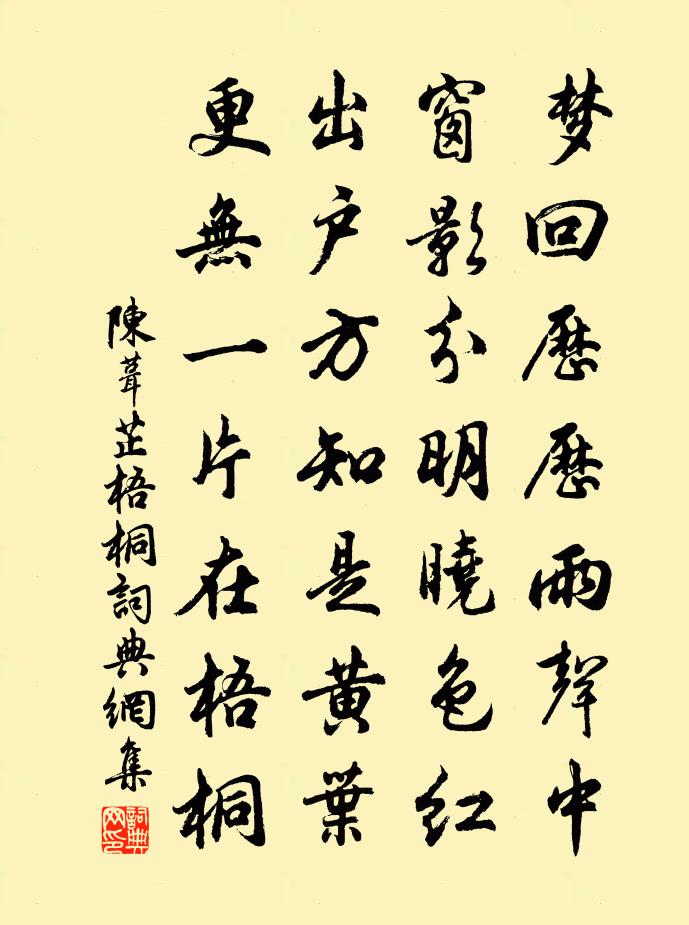 梦回歷歷雨聲中
窗影分明曉色紅
出户方知是黄葉
更無一片在梧桐
陳葺芷梧桐詞典網集
詞典网印